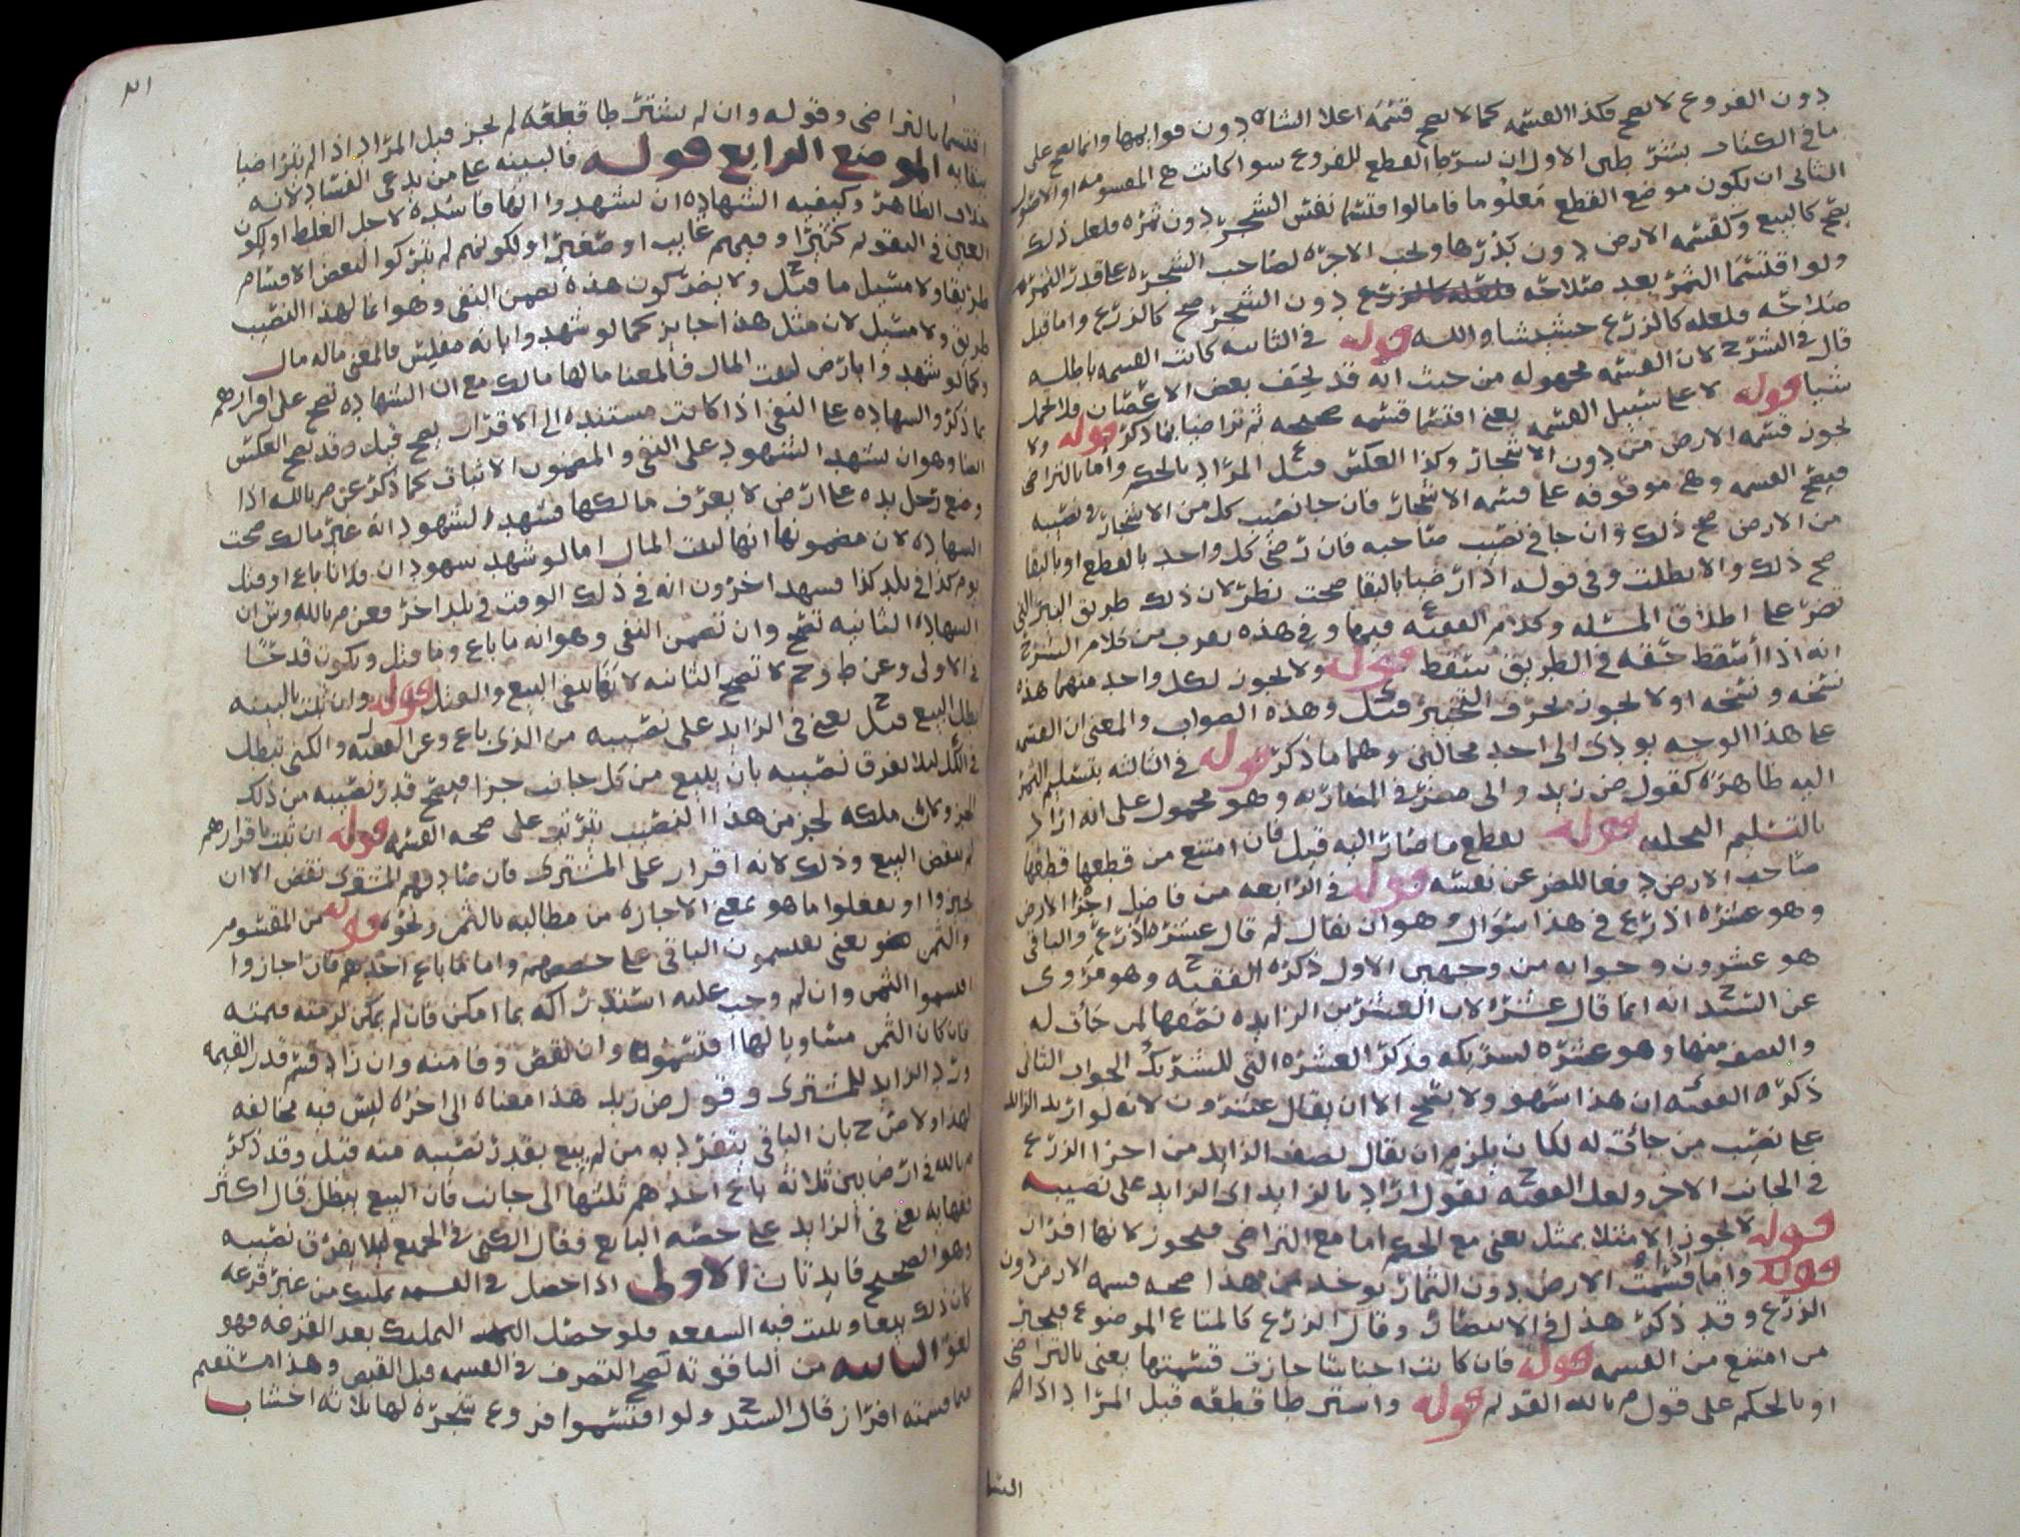 دون الفروع لا تصح فكذا القسمه كما لا تصح قسمة اعلا الشاه دون قوايمها وانما تصح على
ما في الكتاب بشرطين الاول ان يشرطا القطع للفروع سوا كانت هي المقسومه او الاصول
الثاني ان يكون موضع القطع معلوما فاما لو اقتسما نفس الشجر دون ثمره فلعل ذلك
يصح كالبيع وكقسمه الارض دون بذرها ويجب الاجره لصاحب الشجره على قدر الثمره
ولو اقتسما الثمر بعد صلاحه دون الشجر صح كالزرع واما قبل
صلاحه فلعله كالزرع حيث شاء الله قوله في الثانيه كانت القسمه باطله
قال في الشرح لان القسمه مجهوله من حيث انه قد يخف بعض الاغصان فلا يحمل
شيا قوله لا على سبيل القسمه يعني اقتسما قسمه صحيحه ثم تراضيا بما ذكر قوله ولا
يجوز قسمه الارض من دون الاشجار وكذا العكس قيل المراد بالحكم واما بالتراضي
فيصح القسمه وهي موقوفه على قسمه الاشجار فان جا نصيب كل من الاشجار في نصيبه
من الارض صح ذلك وان جا في نصيب صاحبه فان رضي كل واحد بالقطع او بالبقا
صح ذلك والا بطلت وفي قوله اذا رضيا بالبقا صحت نظر لان ذلك طريق البئر التي
نص على اطلاق المسئله وكلام الفقيه فيها وفي هذه يعرف من كلام الشرح
انه اذا اسقط حقه في الطريق سقط قوله ولا يجوز لكل واحد منهما هذه
نسخه ونسخه او لا يجوز بحرف التخيير قيل وهذه الصواب والمعنى ان القسمه
على هذا الوجه يودي الى احد محالين وهما ما ذكر قوله في الثالثه بتسليم الثمر
اليه ظاهره كقول ض زيد والى مضر في المضاربه وهو محمول على انه اراد
بالتسليم التخليه قوله يقطع ما صار اليه قيل فان امتنع من قطعها قطعها
صاحب الارض دفعا للضرر عن نفسه قوله في الرابعه من فاضل اجزا الارض
وهو عشره اذرع في هذا سوال وهو ان يقال لم قال عشره اذرع والباقي
هو عشرون وجوابه من وجهين الاول ذكره الفقيه ح وهو مروي
عن السيد ح انه انما قال عشره لان العشرين الزايده نصفها لمن جات له
والنصف منها وهو عشره لشريكه فذكر العشره التي للشريك الجواب الثاني
ذكره الفقيه ان هذا سهو ولا يصح الا ان يقال عشرون لانه لو اريد الزايد
على نصيب من جات له لكان يلزم ان يقال نصف الزايد من اجزا الزرع
في الجانب الاخر ولعل الفقيه ح يقول اراد بالزايد اي الزايد على نصيبه
قوله لا يجوز الا مثلا بمثل يعني مع الحكم اما مع التراضي فيجوز لانها افراز
قوله واما اذا قسمت الارض دون الثمار يوخذ من هذا صحه قسمه الارض دون
الزرع وقد ذكر هذا في الانتصار وقال الزرع كالمتاع الموضوع فيجبر
من امتنع من القسمه قوله فان كانت اجناسا جازت قسمتها يعني بالتراضي
او بالحكم على قول م بالله القديم قوله واشترطا قطعه قيل المراد اذا لم
الشا
٢١
اقتسما بالتراضي وقوله وان لم يشترطا قطعه لم يجز قيل المراد اذا لم يتراضيا
ببقايه الموضع الرابع قوله فالبينه على من يدعي الفساد لانه
خلاف الظاهر وكيفيه الشهاده ان يشهدوا انها فاسده لاجل الغلط او لكون
الغبن في التقويم كثيرا او فيهم غايب او صغير او لكونهم لم يتركوا لبعض الاقسام
طريقا ولا مسيل ما قيل ح ولا يضر كون هذه تضمن النفي وهو انما لهذا النصيب
طريق ولا مسيل لان مثل هذا جايز كما لو شهدوا بانه مفلس فالمعنى ماله مال
وكما لو شهدوا بارض لبيت المال فالمعنا مالها مالك مع ان الشهاده تصح على اقرارهم
بما ذكر والشهاده على النفي اذا كانت مستنده الى الاقرار يصح قيل وقد يصح العكس
ايضا وهو ان يشهد الشهود على النفي والمضمون الاثبات كما ذكر عن م بالله اذا
وضع رجل يده على ارض لا يعرف مالكها فشهد الشهود انه غير مالك صحت
الشهاده لان مضمونها انها لبيت المال اما لو شهد شهود ان فلانا باع او قتل
يوم كذا في بلد كذا فشهد اخرون انه في ذلك الوقت في بلد اخر فعن م بالله وش ان
الشهاده الثانيه تصح وان تضمن النفي وهو انه ما باع وما قتل ويكون قدحا
في الاولى وعن ط وح لا تصح الثانيه لانها تنفي البيع والقتل قوله وان ثبت بالبينه
بطل البيع قيل ح يعني في الزايد على نصيبه من الذي باع وعن الفقيه والكني تبطل
في الكل ليلا يفرق نصيبه بان يبيع من كل جانب جزا فيصح قدر نصيبه من ذلك
الجزو كان ملكه لجز من هذا النصيب يترتب على صحه القسمه قوله ان ثبت باقرارهم
لم ينقض البيع وذلك لانه اقرار على المشتري فان صادقهم المشتري نقض الا ان
يجيزوا او يفعلوا ما هو بمعنى الاجازه من مطالبه بالثمن ونحوه قوله من المقسوم
والثمن هو يعني يقسمون الباقي على حصصهم واما ما باع احدهم فان اجازوا
اقتسموا الثمن وان لم وجب عليه استدراكه بما امكن فان لم يمكن لزمته قيمته
فان كان الثمن مساويا لها اقتسموه وان نقص وفا منه وان زاد قسم قدر القيمه
ورد الزايد للمشتري وقول ض زيد هذا معناه الى اخره ليس فيه مخالفه
لهذا ولا ض ح بان الباقي ينفرد به من لم يبع بقدر نصيبه منه قيل وقد ذكر
م بالله في ارض بين ثلاثه باع احدهم ثلثها الى جانب فان البيع يبطل قال اكثر
فقهايه يعني في الزايد على حصه البايع فقال الكني في الجميع ليلا يفرق نصيبه
وهو الصحيح فايدتان الاولى اذا حصل في القسمه تمليك من غير قرعه
كان ذلك بيعا ويثبت فيه الشفعه فلو حصل التمليك بعد القرعه فهو
لغو الثانيه من الياقوته تصح التصرف في القسمه قبل القبض وهذا مستقيم
فيما قسمته افراز قال السيد ح ولو اقتسموا فروع شجره لها ثلاثه اخشاب